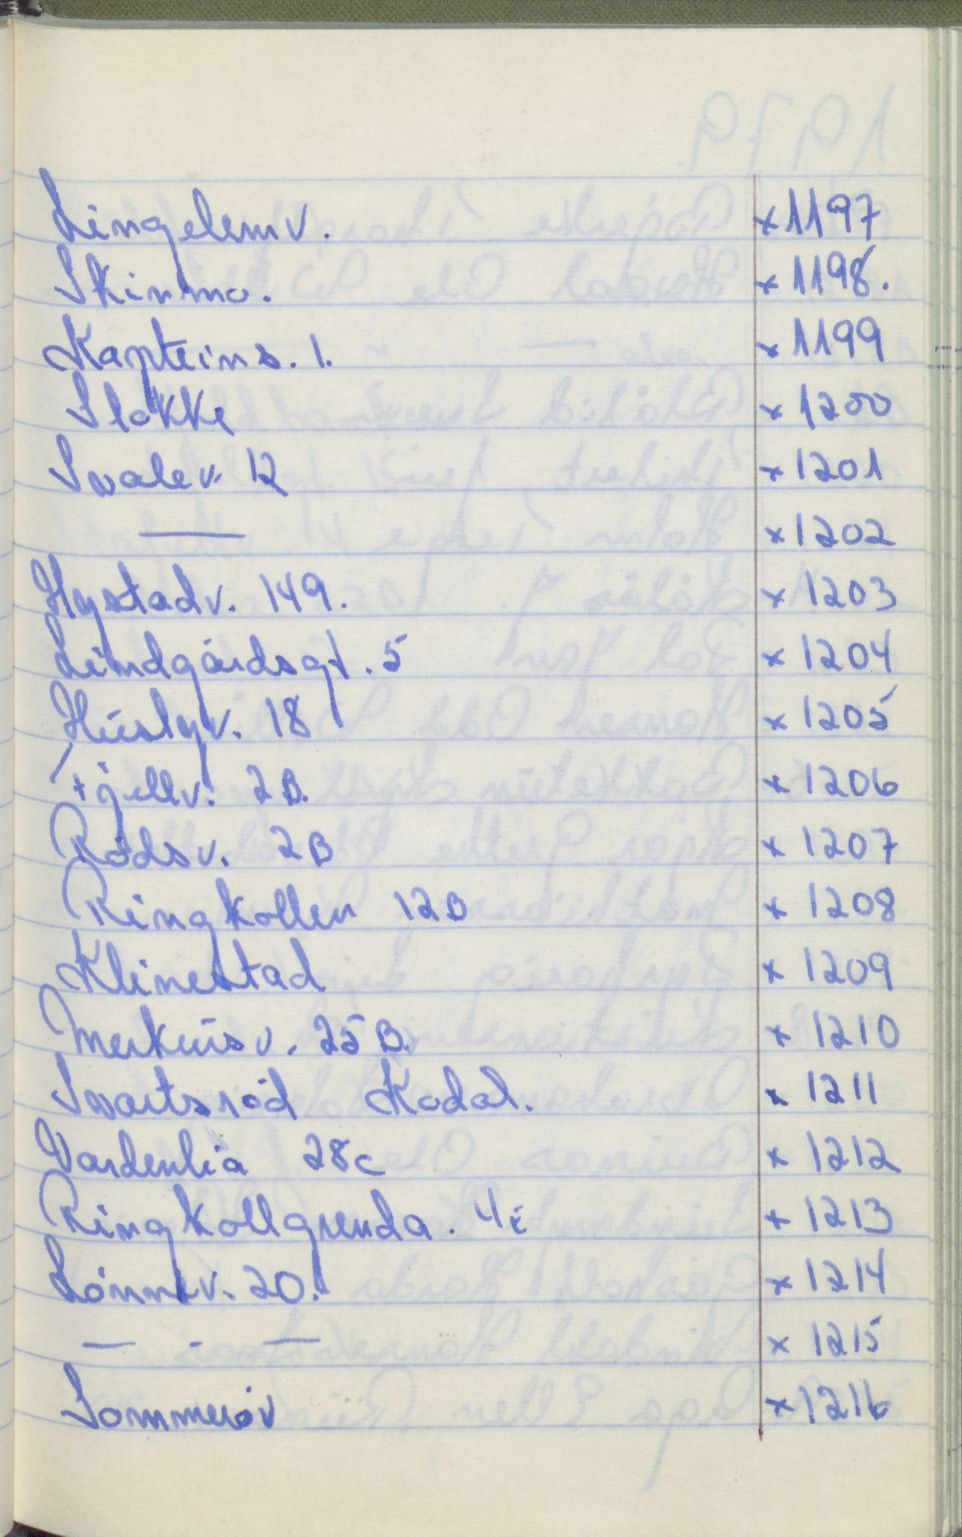 Lingelemv. x 1197
Skinmo. x 1198.
Kapteins. 1. x 1199
Slokke x 1200
Svalev. 12 x 1201
— x 1202
Hystadv. 149. x 1203
Lindgårdsgt. 5 x 1204
Húsbyv. 18 x 1205
Fjellv. 2B. x 1206
Rødsv. 2B x 1207
Ringkollen 12B x 1208
Klinestad x 1209
Merkúrsv. 25 B. x 1210
Svartsrød Kodal. x 1211
Vardenlia 28c x 1212
Ringkollgrenda. 4c x 1213
Lønnev. 20. x 1214
— - — x 1215
Sommerøv x 1216